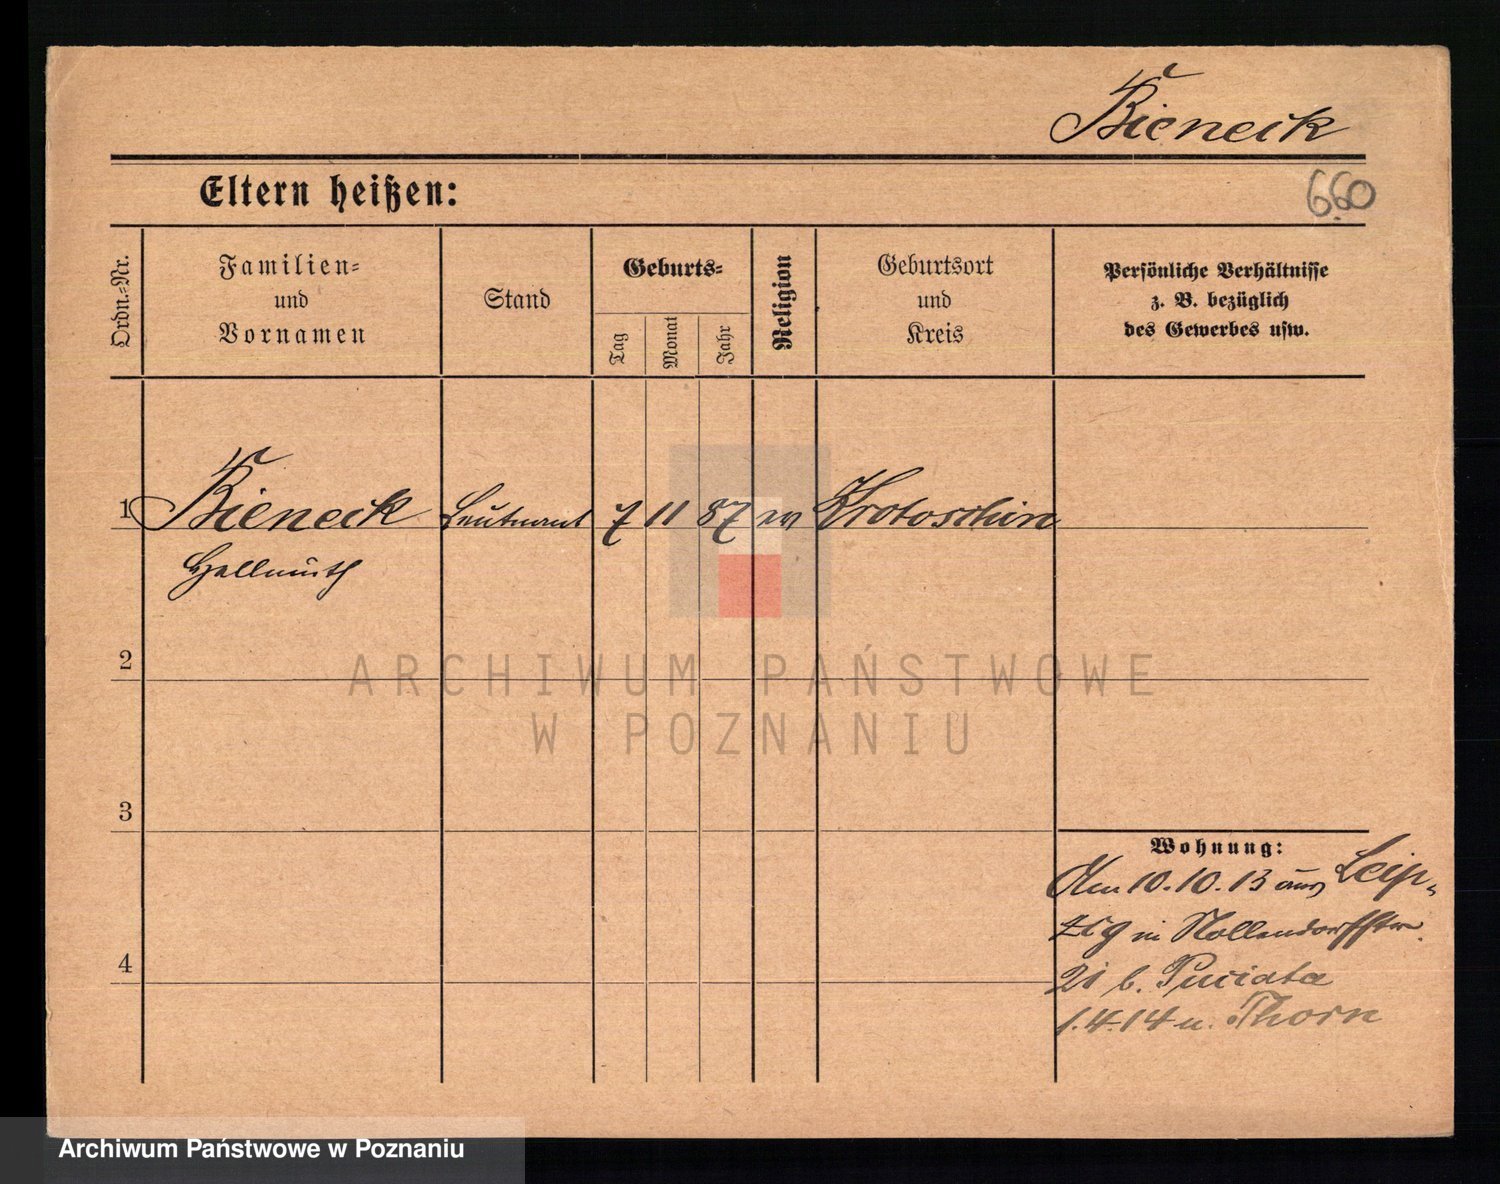 Bieneck
Eltern heißen:
660
Ordn.-Nr.
Familien-
und
Vornamen
Stand
Geburts-
Tag
Monat
Jahr
Religion
Geburtsort
und
Kreis
Persönliche Verhältnisse
z. B. bezüglich
des Gewerbes usw.
1 Bieneck Leutnant 7 11 87 ev Krotoschin
Hellmuth
2
ARCHIWUM PAŃSTWOWE
W POZNANIU
3
Wohnung:
Am 10.10.13 aus Leip-
zig in Nollendorffstr.
21 b. Puciata
1.4.14 n. Thorn
4
Archiwum Państwowe w Poznaniu